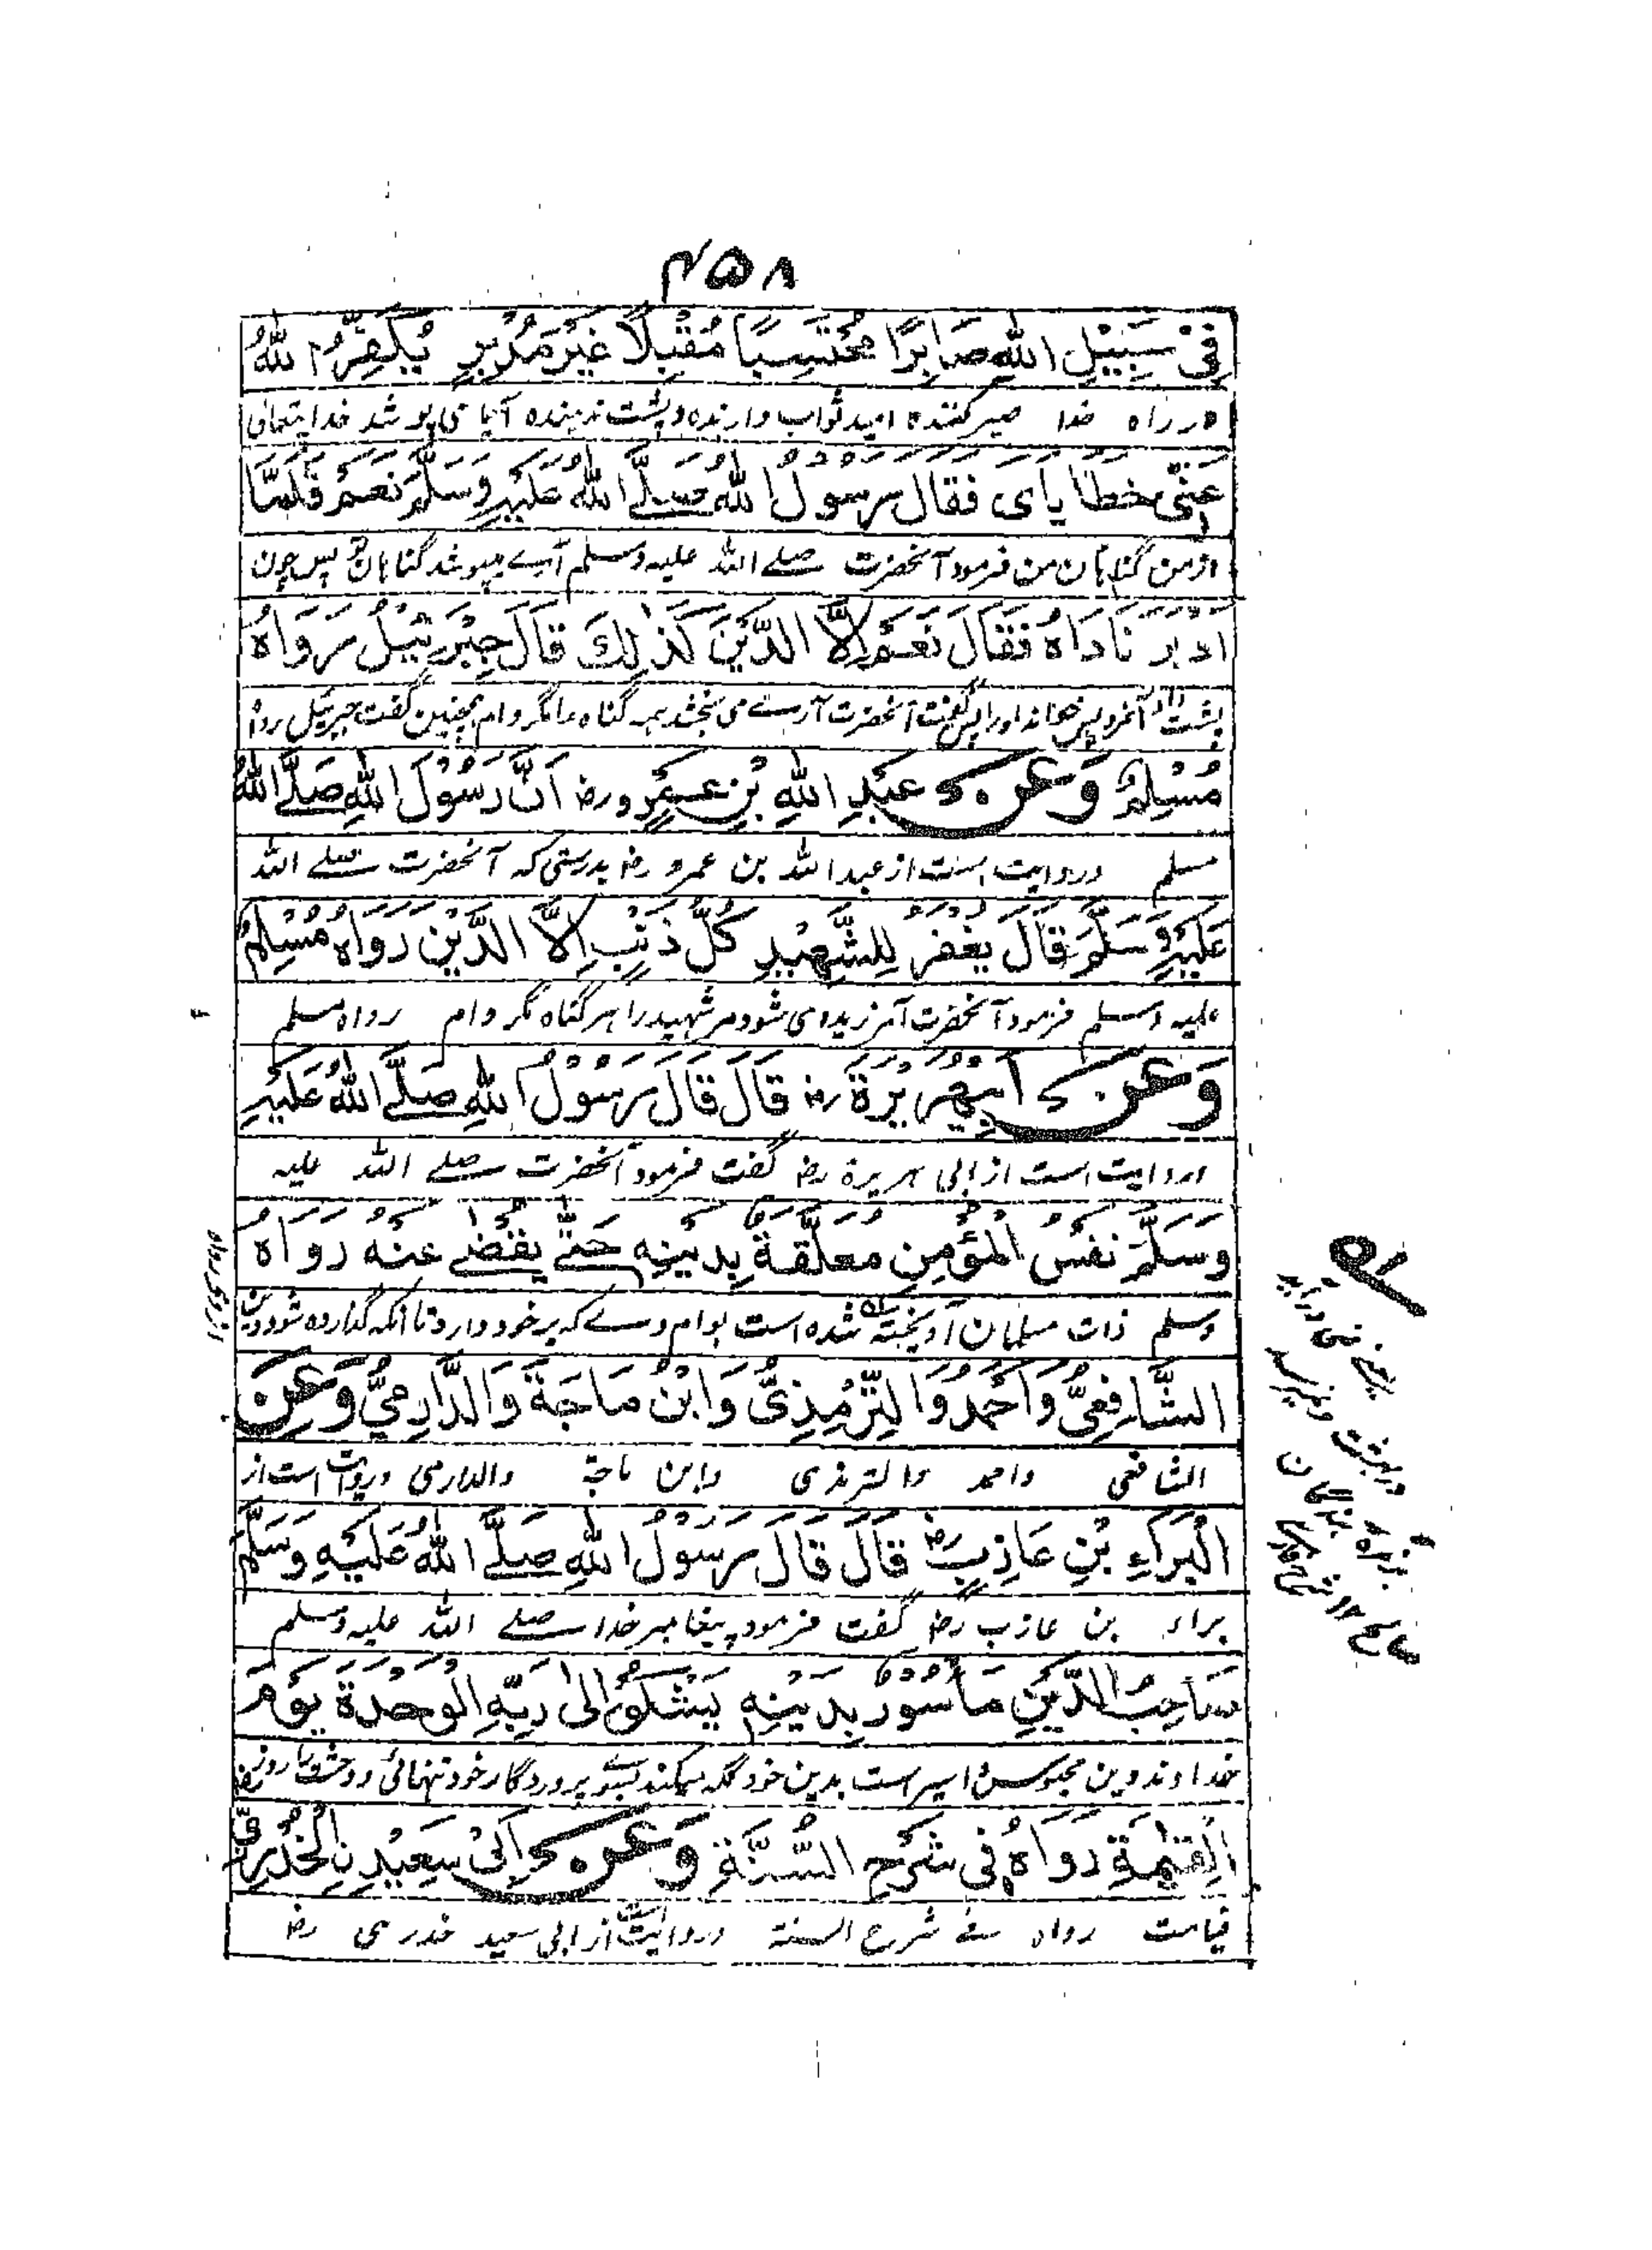 ۴۵۸
فِیْ سَبِیْلِ اللهِ صَابِرًا مُحْتَسِبًا مُقْبِلًا غَیْرَ مُدْبِرٍ یُکَفِّرُ اللهُ
در راه خدا صبر کننده امید ثواب دارنده و پشت ندهنده آیا می پوشد خدایتعالی
عَنِّیْ خَطَایَایَ فَقَالَ رَسُوْلُ اللهِ صَلَّے اللهُ عَلَیْهِ وَسَلَّمَ نَعَمْ فَلَمَّا
از من گناهان من فرمود آنحضرت صلے الله علیه وسلم آرے میپوشد گناهان تو پس چون
اَدْبَرَ نَادَاهُ فَقَالَ نَعَمْ اِلَّا الدَّیْنَ کَذٰلِكَ قَالَ جِبْرَئِیْلُ رَوَاهُ
پشت داد آنمرد پس خواند اورا پس گفت آنحضرت آرے می بخشد همه گناه ما مگر وام همچنین گفت جبرئیل رواه
مُسْلِمٌ وَعَنْ عَبْدِ اللهِ بْنِ عَمْرٍو رض اَنَّ رَسُوْلَ اللهِ صَلَّے اللهُ
مسلم و روایت است از عبد الله بن عمرو رض بدرستی که آنحضرت صلے الله
عَلَیْهِ وَسَلَّمَ قَالَ یُغْفَرُ لِلشَّهِیْدِ کُلُّ ذَنْبٍ اِلَّا الدَّیْنَ رَوَاهُ مُسْلِمٌ
علیه وسلم فرمود آنحضرت آمرزیده می شود مر شهید را هر گناه مگر وام رواه مسلم
وَعَنْ اَبِیْ هُرَیْرَةَ رض قَالَ قَالَ رَسُوْلُ اللهِ صَلَّے اللهُ عَلَیْهِ
و روایت است از ابی هریرة رض گفت فرمود آنحضرت صلے الله علیه
وَسَلَّمَ نَفْسُ الْمُؤْمِنِ مُعَلَّقَةٌ بِدَیْنِهٖ حَتّٰے یُقْضٰے عَنْهُ رَوَاهُ
وسلم ذات مسلمان آویخته شده است بوام وے که بر خود دارد تا آنکه گذارده شود دین
الشَّافِعِیُّ وَاَحْمَدُ وَالتِّرْمِذِیُّ وَابْنُ مَاجَةَ وَالدَّارِمِیُّ وَعَنِ
الشافعی واحمد والترمذی وابن ماجة والدارمی و روایت است از
الْبَرَاءِ بْنِ عَازِبٍ رض قَالَ قَالَ رَسُوْلُ اللهِ صَلَّے اللهُ عَلَیْهِ وَسَلَّمَ
براء بن عازب رض گفت فرمود پیغامبر خدا صلے الله علیه وسلم
صَاحِبُ الدَّیْنِ مَأْسُوْرٌ بِدَیْنِهٖ یَشْکُوْ اِلٰی رَبِّهِ الْوَحْدَةَ یَوْمَ
خداوند دین محبوس اسیر است بدین خود گله میکند بسوے پروردگار خود تنهائی و وحشت را روز
الْقِیٰمَةِ رَوَاهُ فِیْ شَرْحِ السُّنَّةِ وَعَنْ اَبِیْ سَعِیْدِ نِ الْخُدْرِیِّ
قیامت رواه فے شرح السنة و روایت است از ابی سعید خدری رض
یعنے نمی درآید